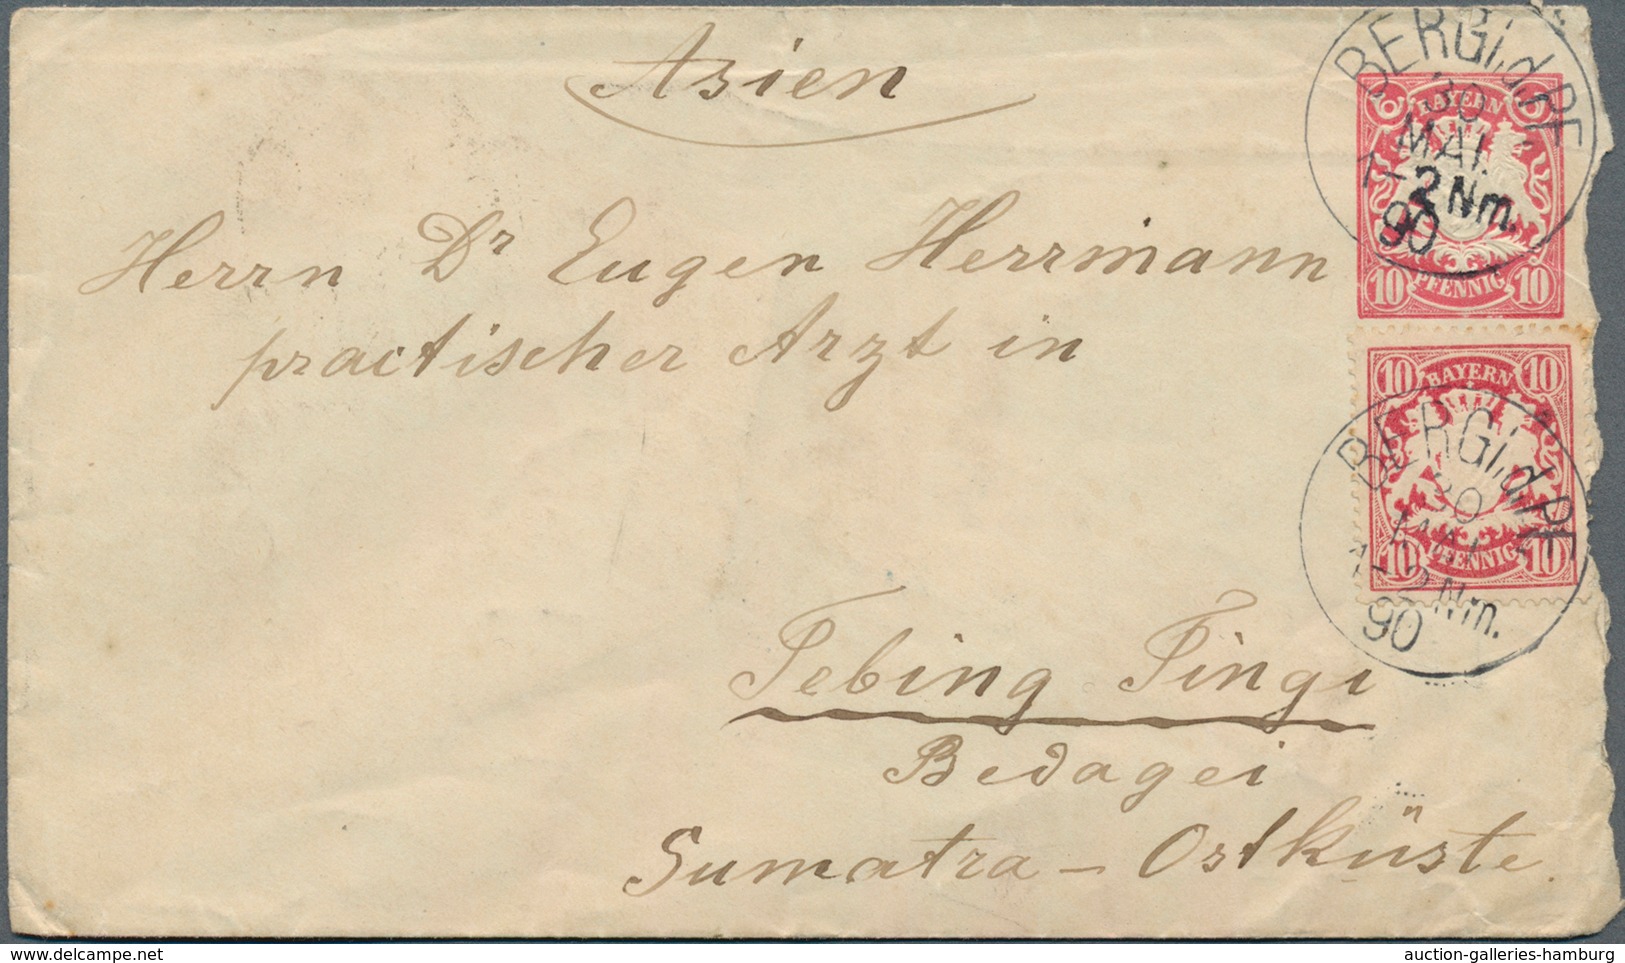 Asien
BERG i.d. PF.
30
MAI.
1-2Nm.
90
BAYERN
10 PFENNIG 10
Herrn Dr Eugen Herrmann
practischer Arzt in
10 BAYERN 10
BERG i.d. PF.
30
MAI.
1-2Nm.
90
10 PFENNIG 10
Tebing Tingi
Bedagei
Sumatra - Ostküste.
delcampe.net
auction-galleries-hamburg